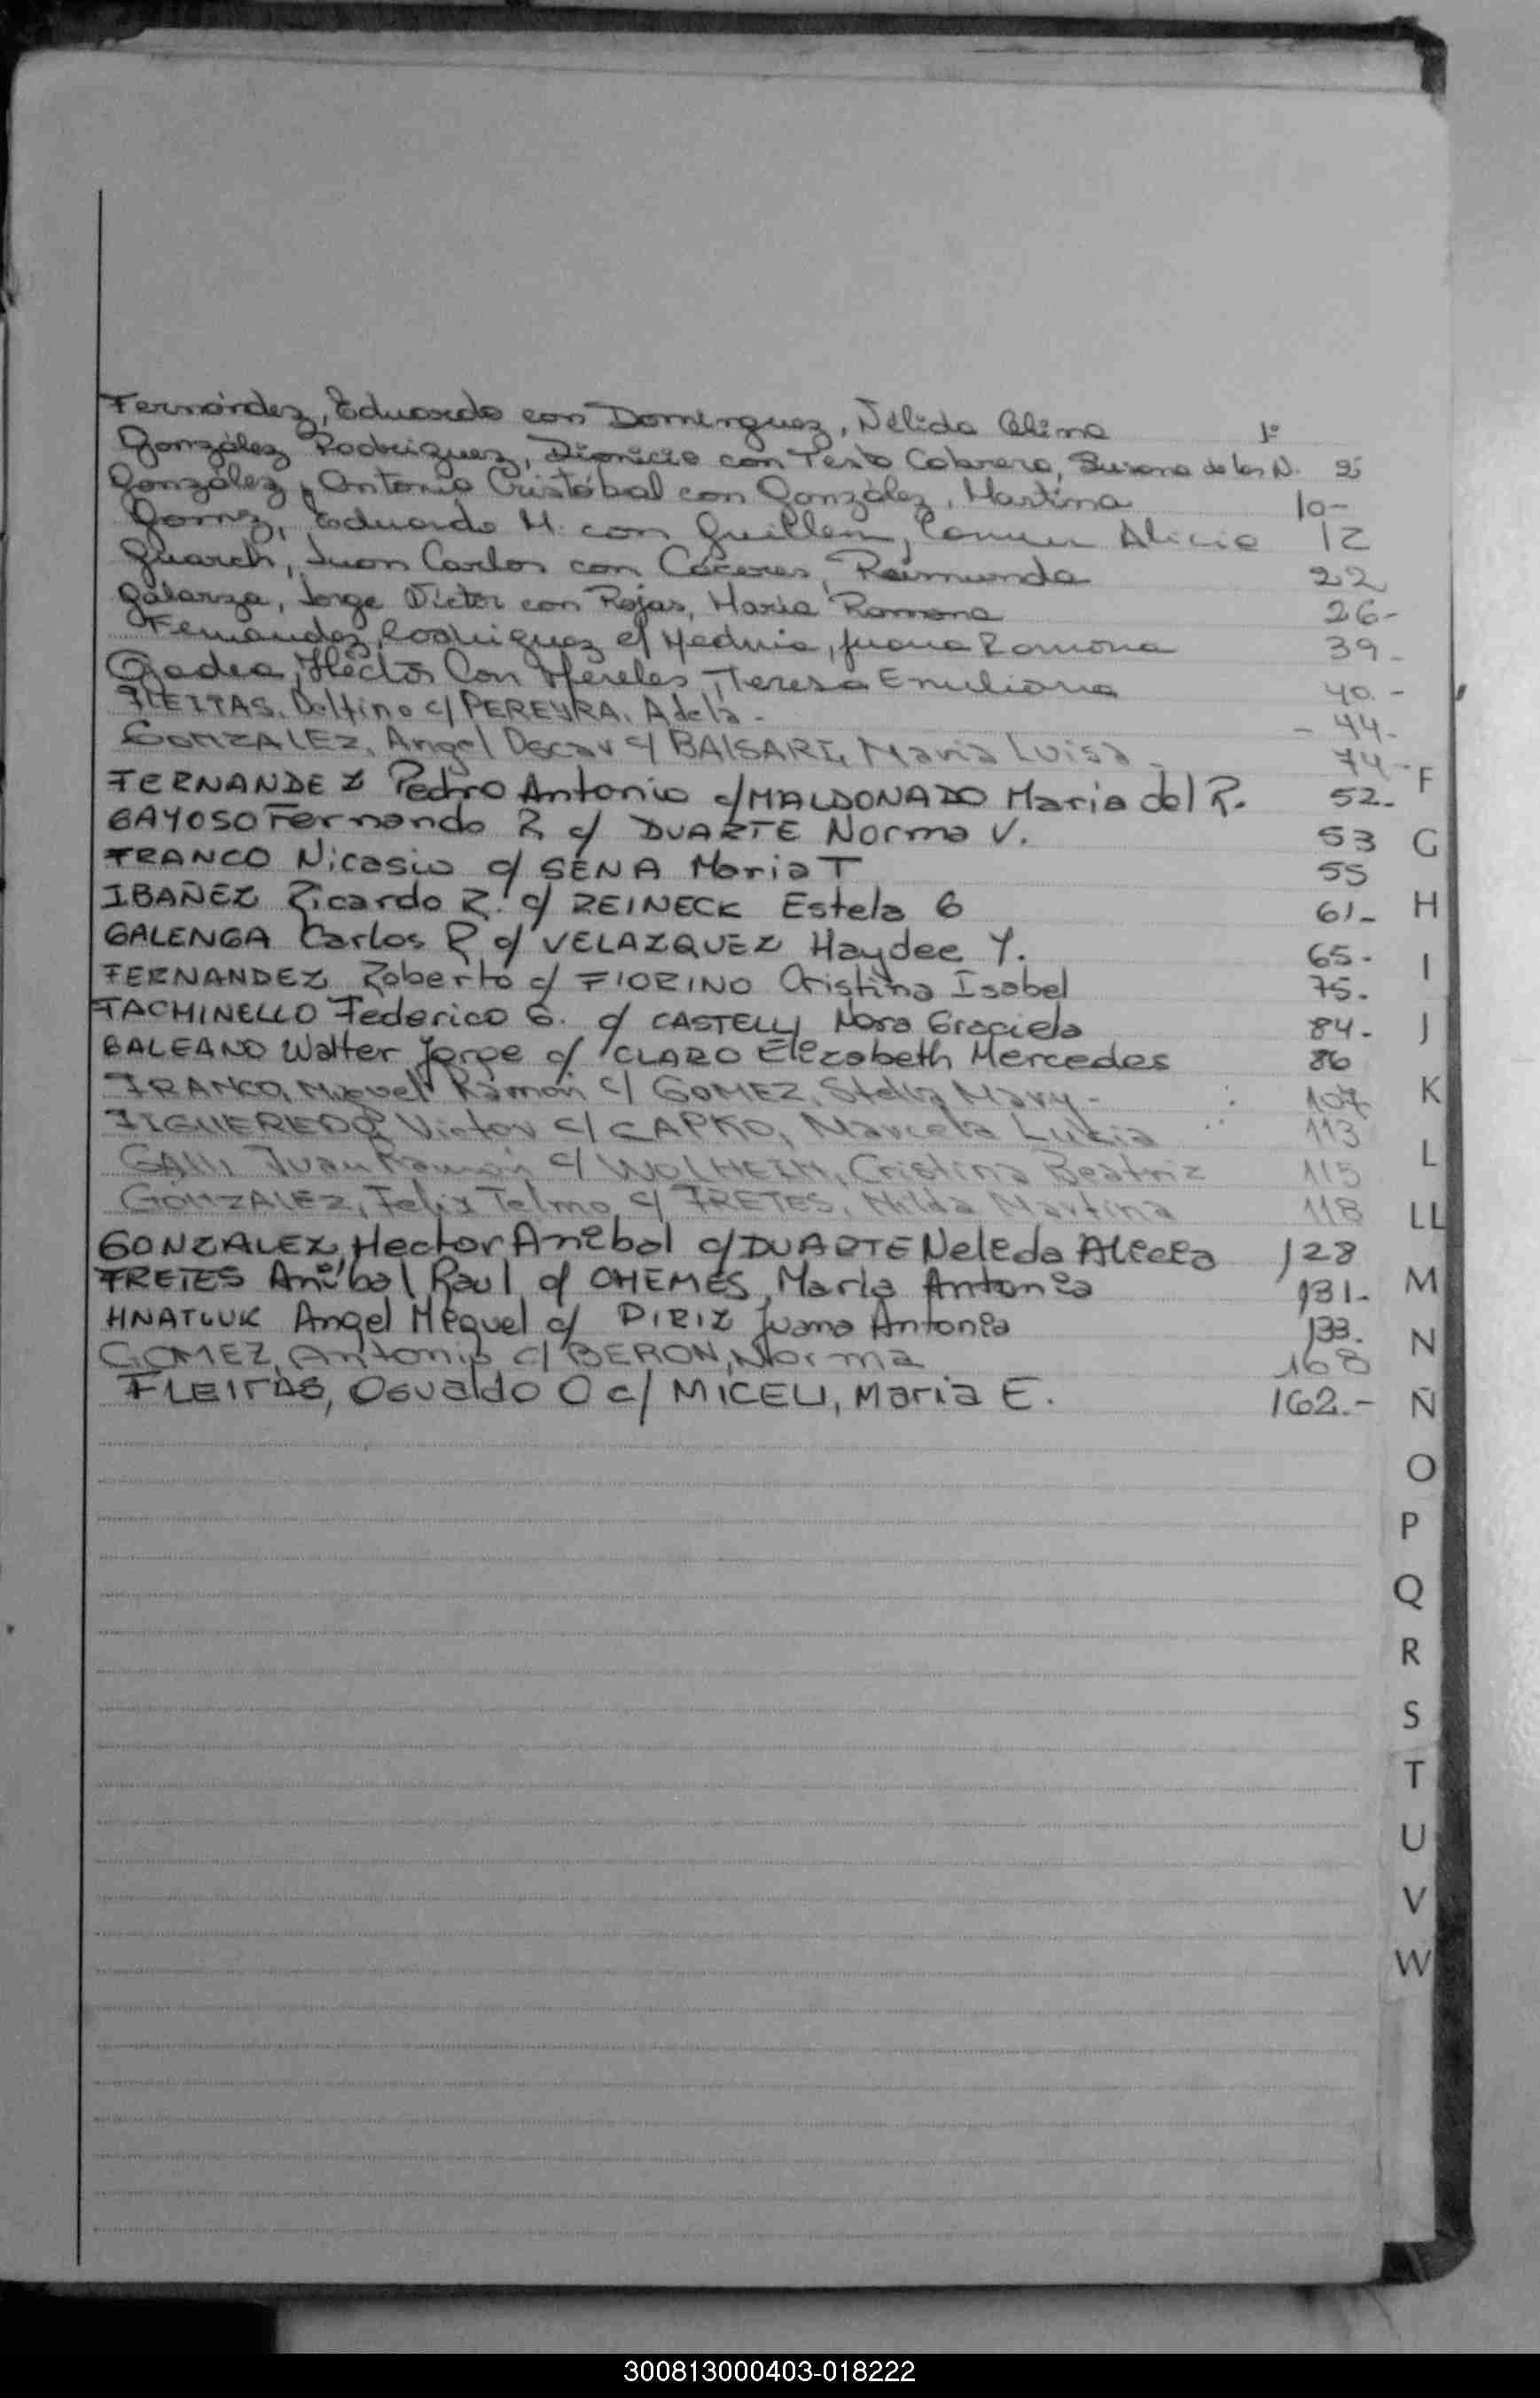 Fernández, Eduardo con Dominguez, Nélida Celina 1º
González Rodriguez, Dionicio con Texto Cabrera, Susana de los N. 9
González, Antonio Cristóbal con González, Martina 10-
Gomez, Eduardo M. con Guillen, Alicia 12
Guarch, Juan Carlos con Cáceres, Raimunda 22
Galarza, Jorge Victor con Rojas, Maria Ramona 26-
Fernandez, Rodriguez c/ Medina, Juana Ramona 39-
Godea, Héctor Con Mereles, Teresa Emiliana 40.-
FLEITAS, Delfino c/ PEREYRA, Adela - - 44-
GONZALEZ, Angel Oscar c/ BALSARI, Maria Luisa - 74-
FERNANDEZ Pedro Antonio c/ MALDONADO Maria del R. 52-
GAYOSO Fernando R c/ DUARTE Norma V. 53
FRANCO Nicasio c/ SENA Maria T 55
IBAÑEZ Ricardo R. c/ REINECK Estela G 61-
GALENGA Carlos R c/ VELAZQUEZ Haydee Y. 65-
FERNANDEZ Roberto c/ FIORINO Cristina Isabel 75.
FACHINELLO Federico G. c/ CASTELLI Nora Graciela 84-
GALEANO Walter Jorge c/ CLARO Elizabeth Mercedes 86
FRANCO, Miguel Ramón c/ GOMEZ, Stella Mary - 107
FIGUEREDO, Victor c/ CAPKO, Marcela Lucia 113
GALLI, Juan Ramón c/ WOLHEIM, Cristina Beatriz 115
GONZALEZ, Felix Telmo c/ FRETES, Nilda Martina 118
GONZALEZ, Hector Anibal c/ DUARTE Nelida Alicia 128
FRETES Anibal Raul c/ CHEMES, Marla Antonia 131-
HNATIUK Angel Miguel c/ PIRIZ Juana Antonia 133.
GOMEZ, Antonio c/ BERON, Norma 168
FLEITAS, Osvaldo O c/ MICELI, Maria E. 162.-
F
G
H
I
J
K
L
LL
M
N
Ñ
O
P
Q
R
S
T
U
V
W
300813000403-018222